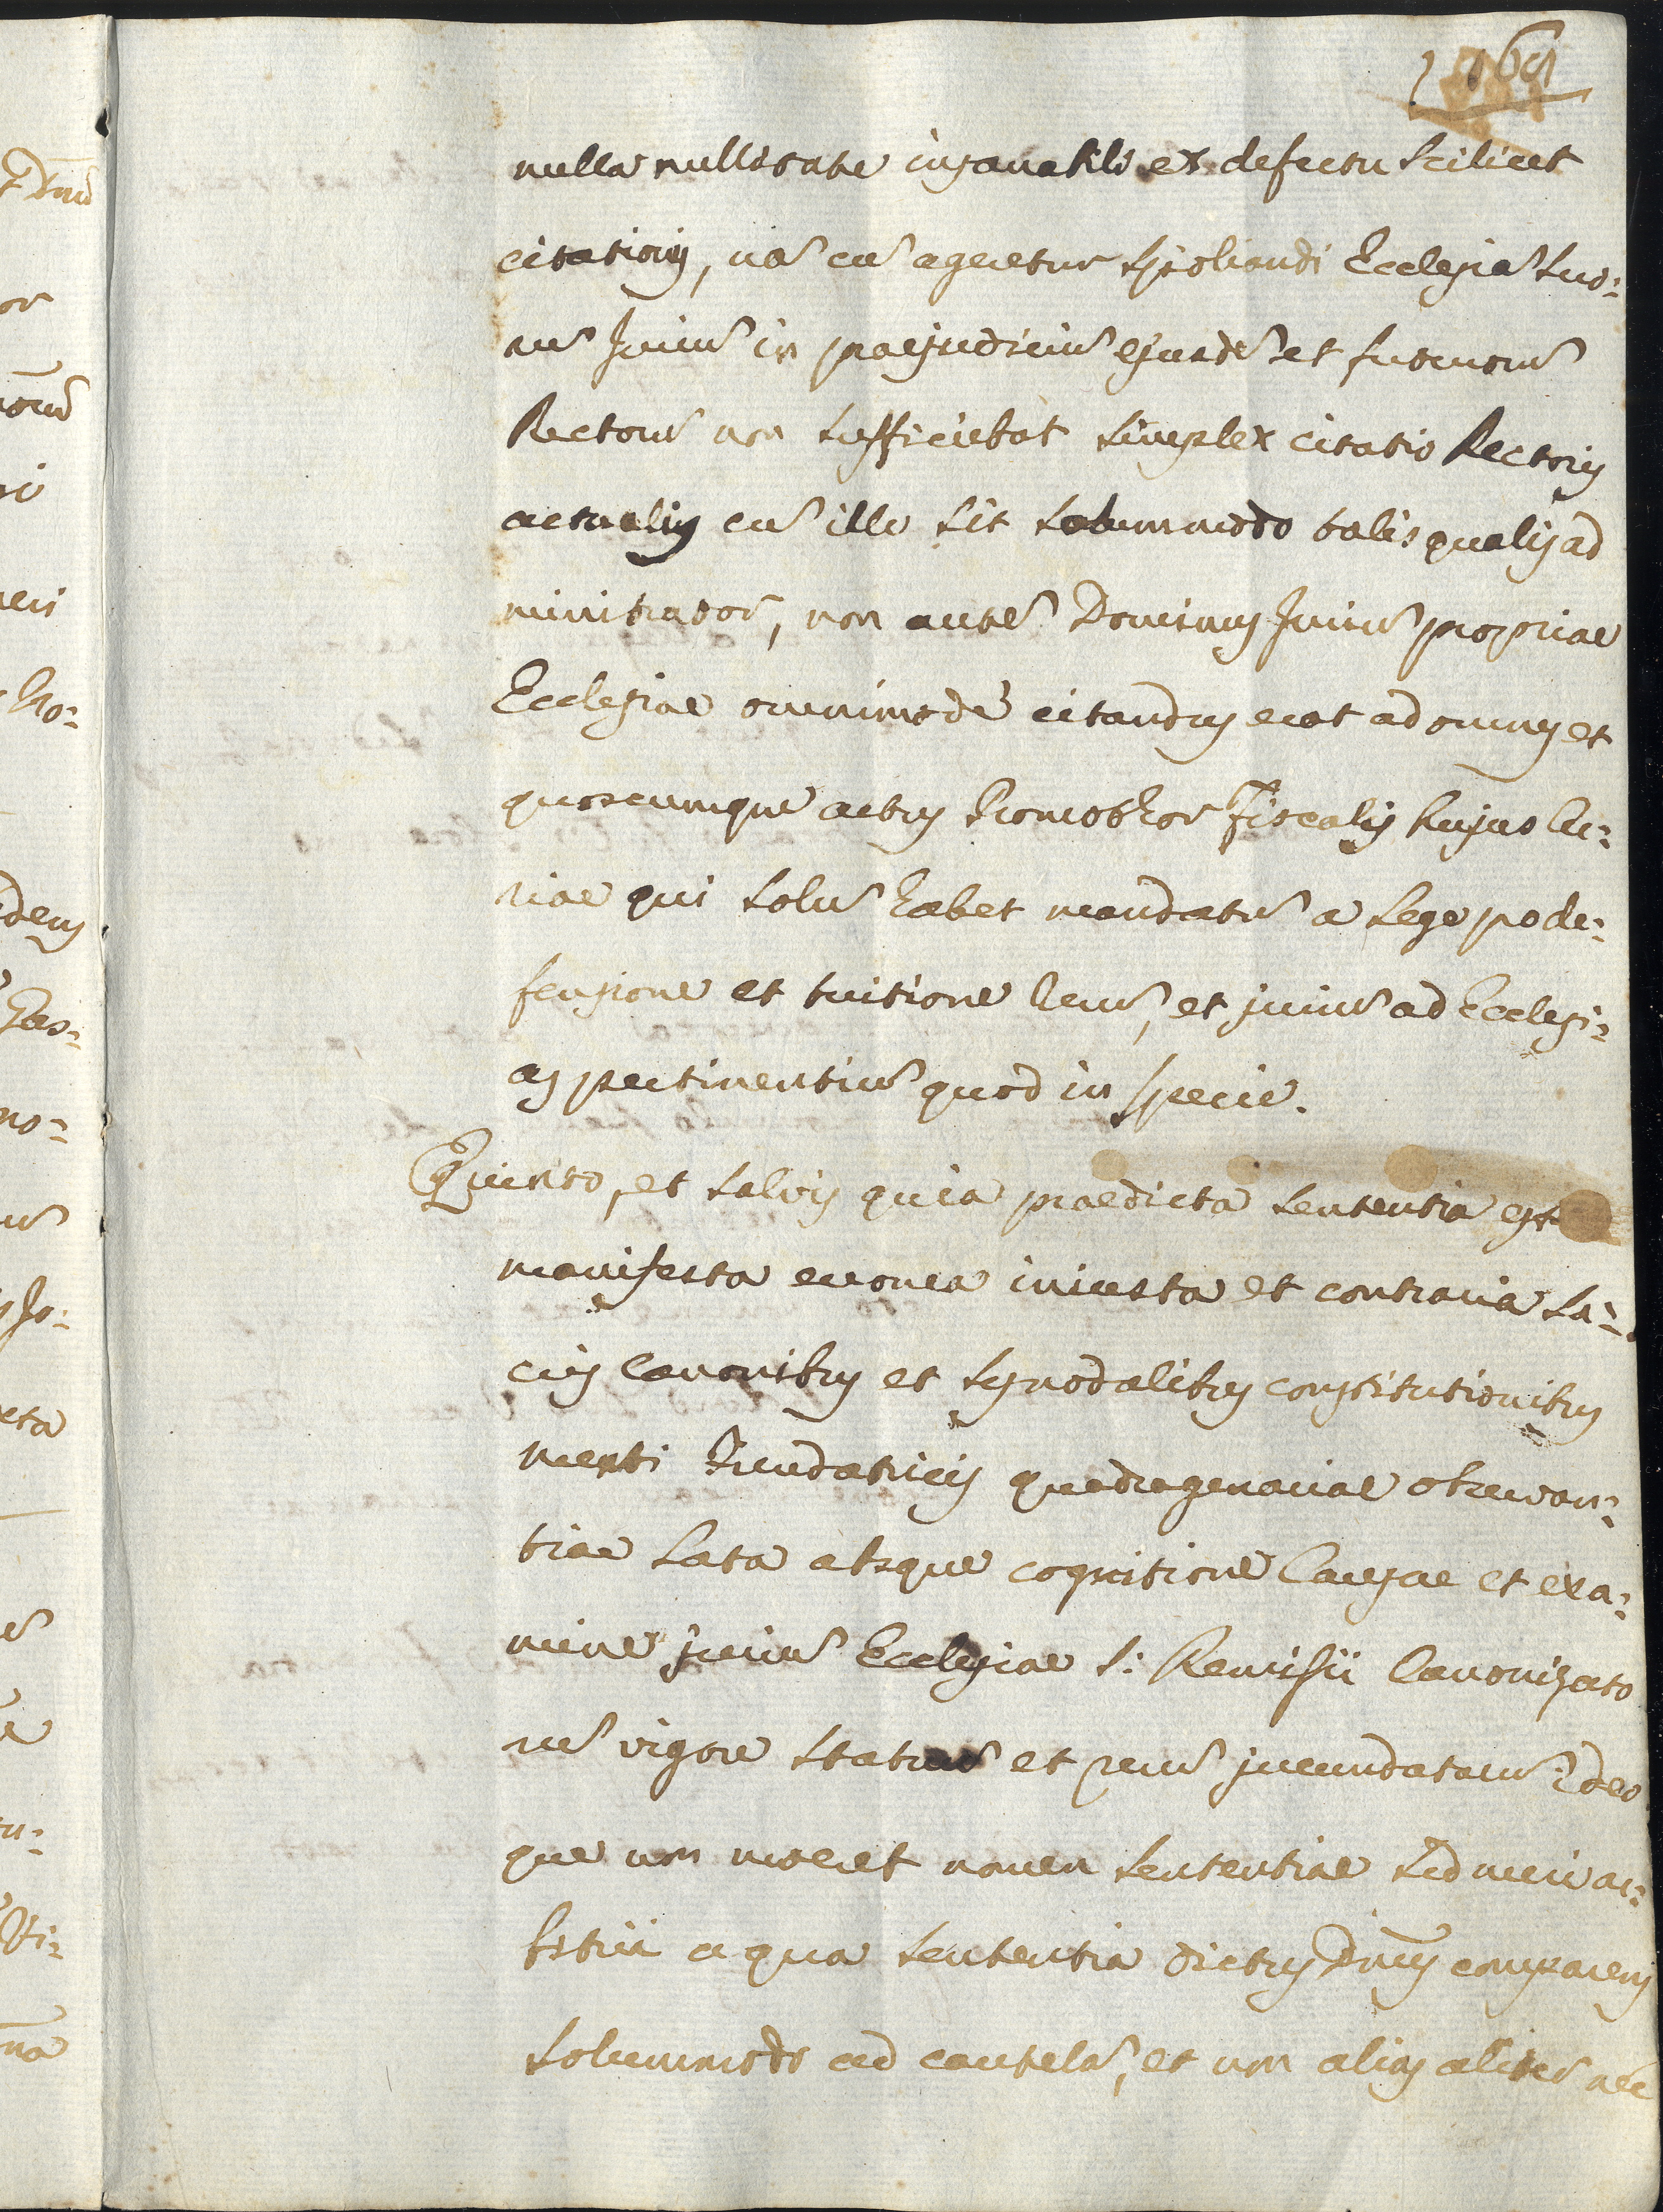 169
nulla nullitate insanabili ex defectu scilicet
citationis, na͂ cu͂ ageretur spoliandi Ecclesia͂ suo:
ru͂ juriu͂ in praejudiciu͂ ejusde͂ et futuroru͂
Rectoru͂ non sufficiebat simplex citatio Rectoris
actualis cu͂ ille sit solummodo talis qualis ad
ministrator, non aute͂ Dominus juriu͂ propriae
Ecclesiae omnimode citandus erat ad omnes et
quoscumque actus Promothor Fiscalis hujus Cu:
riae qui solus habet mandatu͂ a lege pro de:
fensione et tuitione reru͂, et juriu͂ ad Ecclesi:
as pertinentiu͂ quod in specie.
Quinto, et salvis quia praedicta sententia est
manifesta erronea iniusta et contraria Sa:
cris Canonibus et synodalibus constitutionibus
menti Fundatricis quadragenariae observan:
tiae lata absque cognitione Causae et exa:
mine juriu͂ Ecclesiae S: Remisii Canonizato
ru͂ vigore statuu͂ et reru͂ jucundataru͂ ideo
que non meret nomen sententiae sed meri ar:
bitrii a qua sententia dictus Dnus comparens
solummodo ad cautela͂, et non alias aliter nec